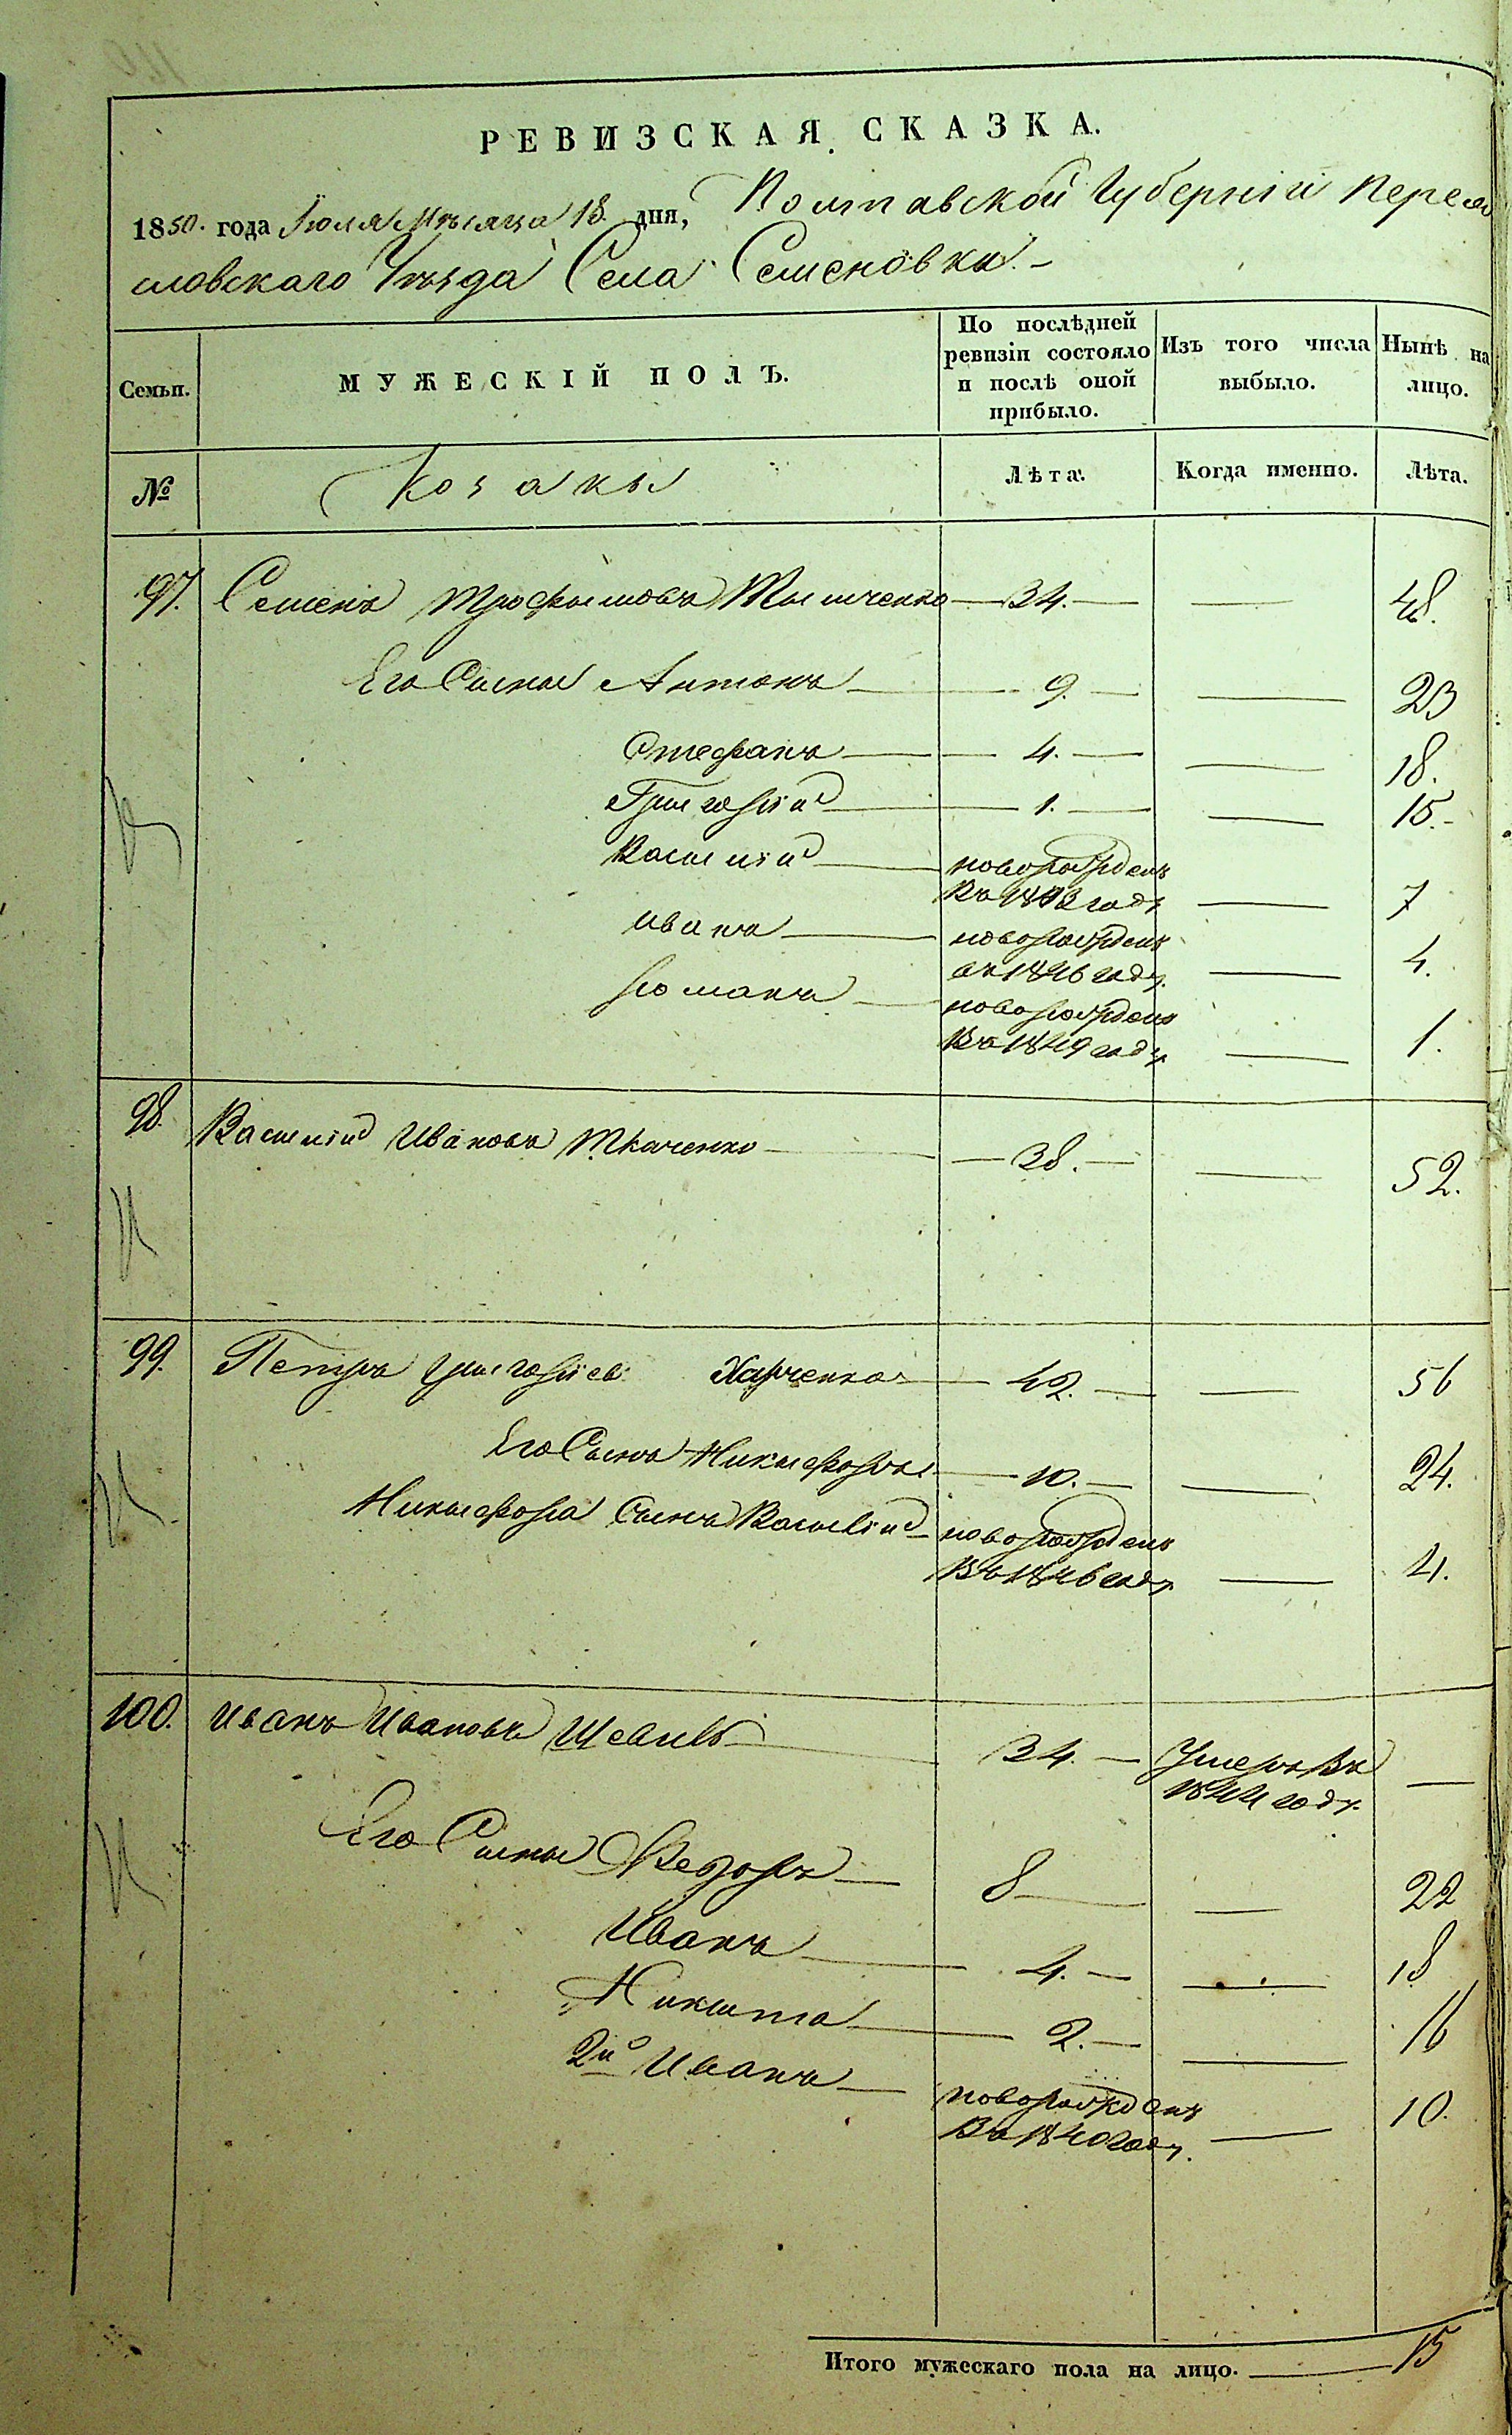 РЕВИЗСКАЯ СКАЗКА.
1850. года Іюля Мѣсяца 18. дня, Полтавской Губерніи Перея
словскаго Уѣзда Села Семеновки.-
Семьи.
МУЖЕСКІЙ ПОЛЪ.
По послѣдней
ревизіи состояло
и послѣ оной
прибыло.
Изъ того числа
выбыло.
Нынѣ на
лицо.
№ Козакы Лѣта. Когда именно. Лѣта.
97. Семенъ Трофымовъ Тымченко — 34. — — 48.
Его Сыны Антонъ — 9. — — 23
Стефанъ — 4. — — 18.
Григорій — 1. — — 15.-
Василій — новорожденъ
Въ 1843 году — 7
Иванъ — новорожденъ
въ 1846 году. — 4.
Романъ — новорожденъ
Въ 1849 году — 1.
98. Василій Ивановъ Ткаченко — 38. — — 52.
99. Петръ Григоріевъ Харченко — 42. — — 56
Его Сынъ Никыфоръ — 10. — — 24.
Никыфора Сынъ Василій — новорожденъ
Въ 1846 году. — 4.
100. Иванъ Ивановъ — 34. — Умеръ Въ
1844 году. —
Его Сыны Федоръ — 8 — — 22
Иванъ — 4. — — 18
Никита — 2. — — 16
2й Иванъ — новорожденъ
Въ 1840 году. — 10.
Итого мужескаго пола на лицо. — 15